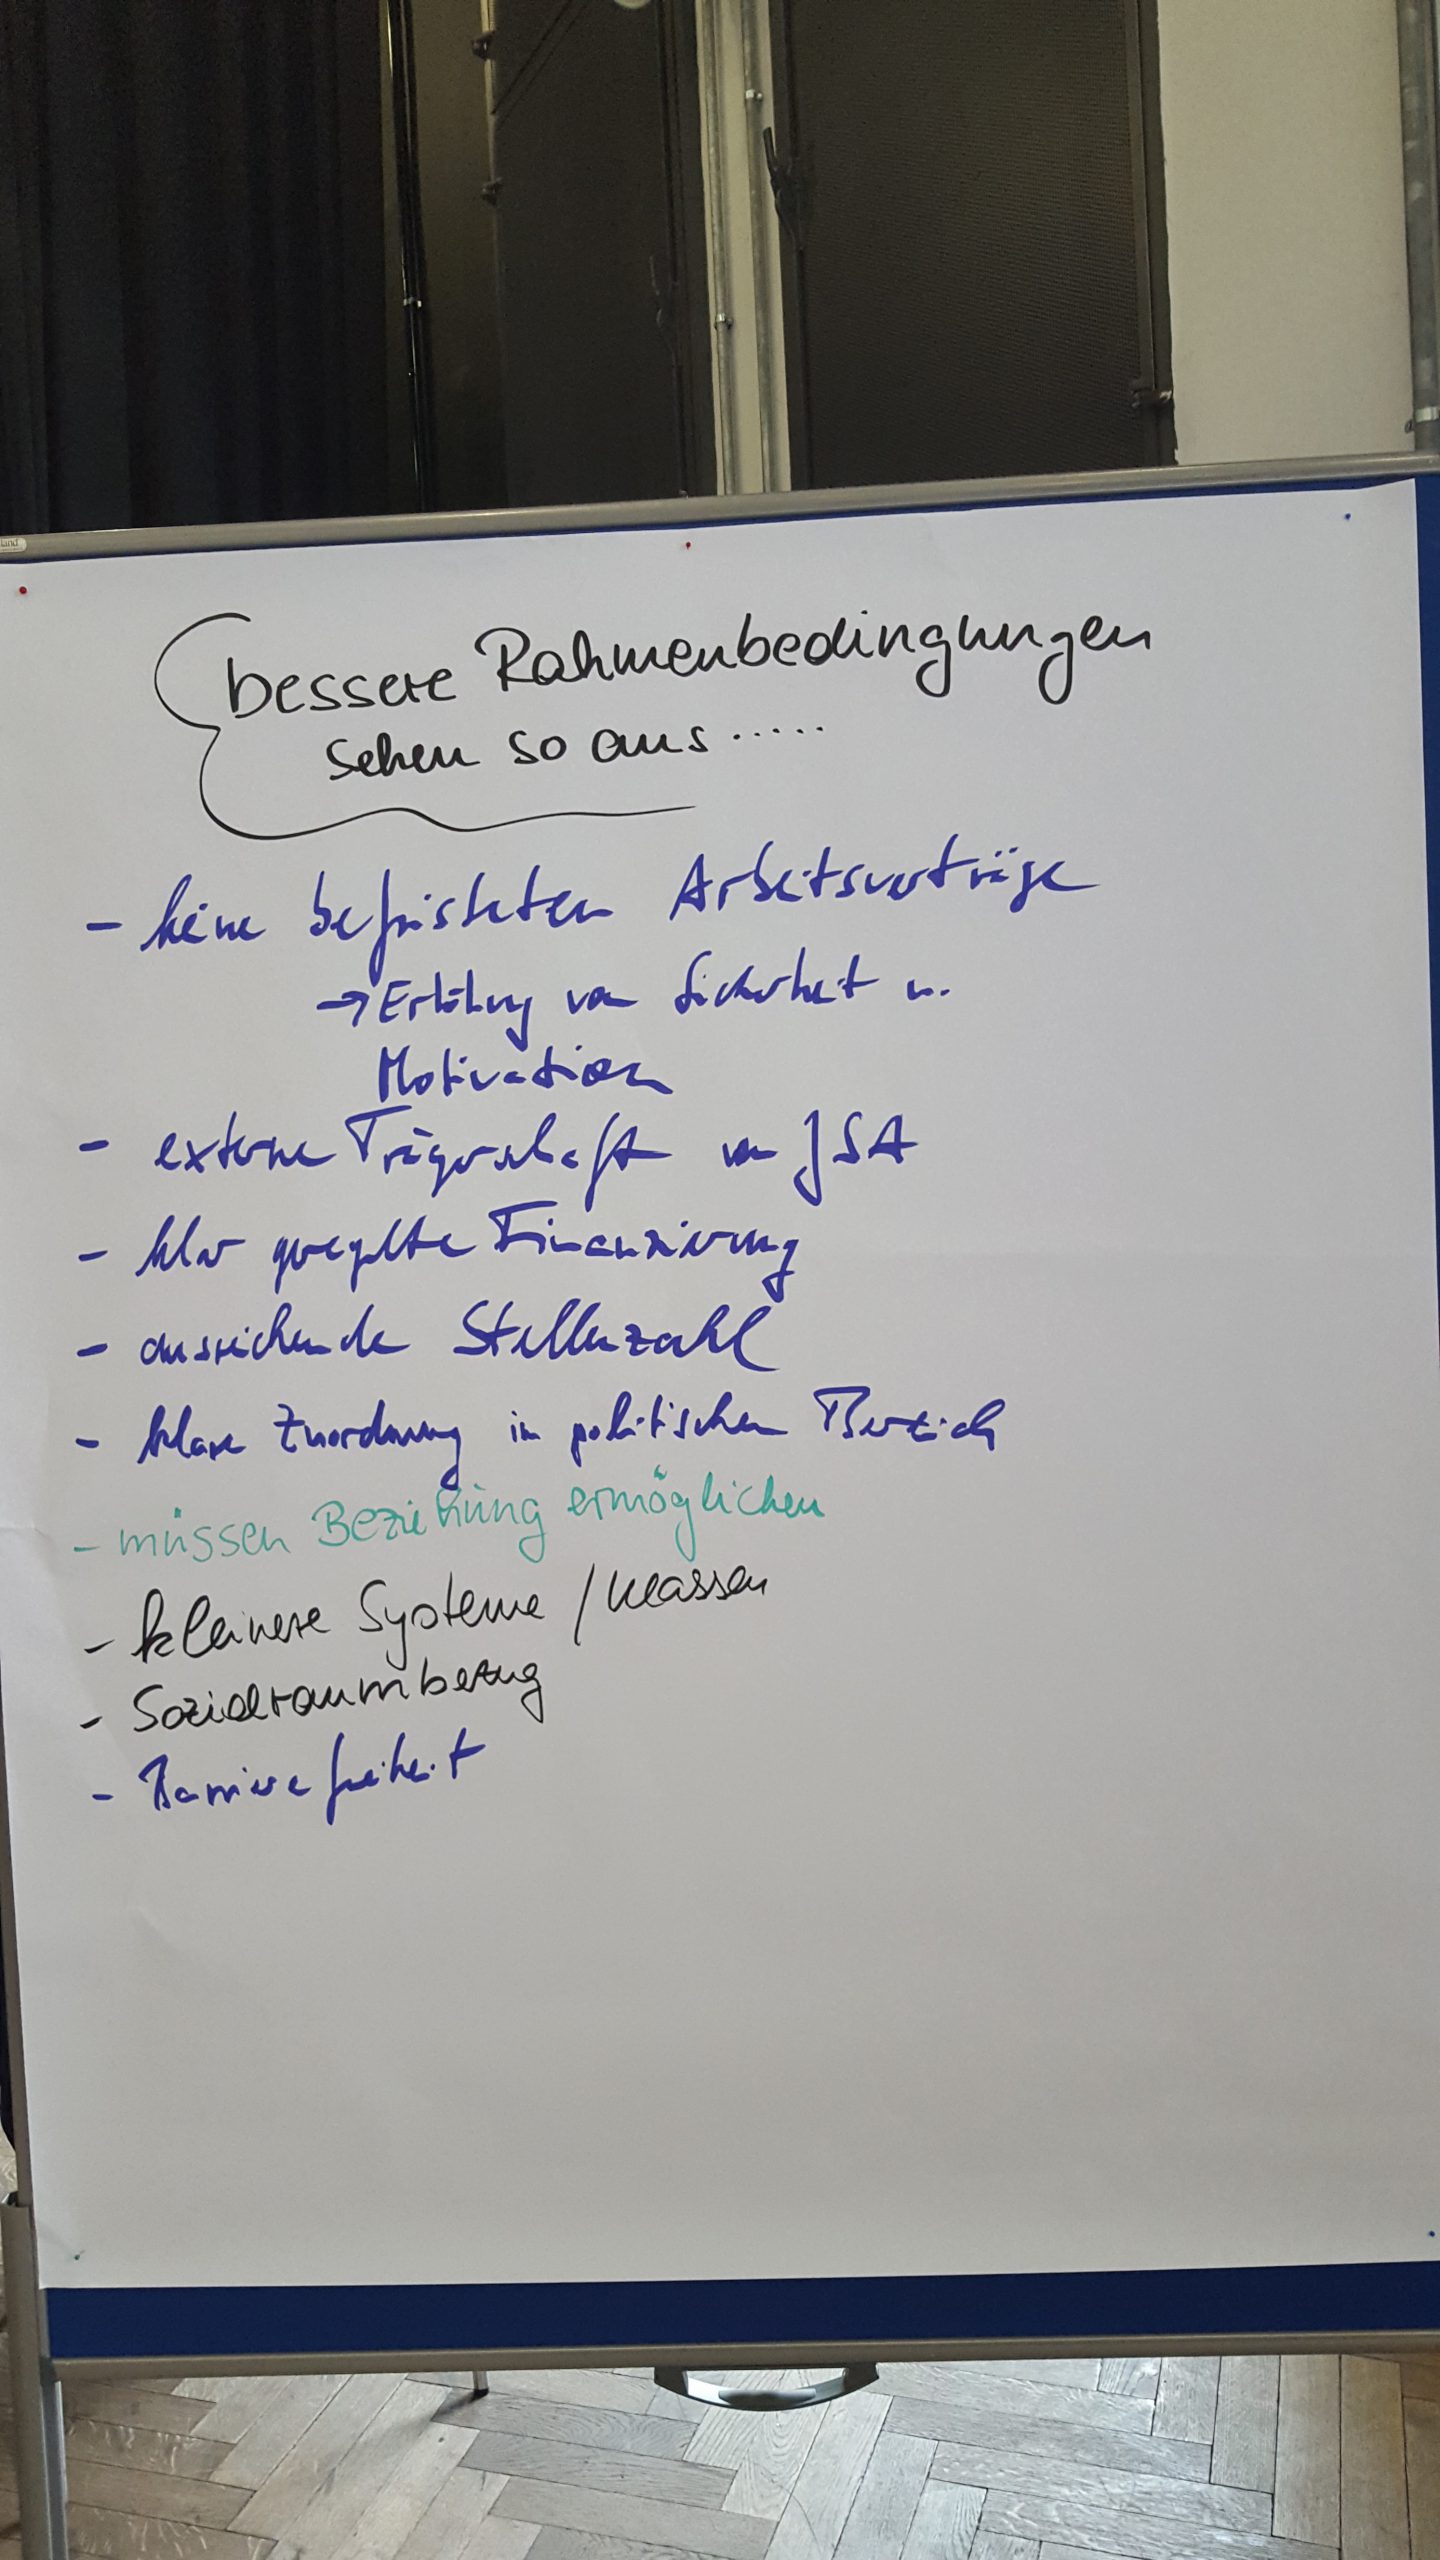 bessere Rahmenbedingungen
sehen so aus .....
- keine befristeten Arbeitsverträge
→ Erhöhung von Sicherheit u.
Motivation
- externe Trägerschaft von JSA
- klar geregelte Finanzierung
- ausreichende Stellenzahl
- klare Zuordnung im politischen Bereich
- müssen Beziehung ermöglichen
- kleinere Systeme / Klassen
- Sozialraumbezug
- Barrierefreiheit